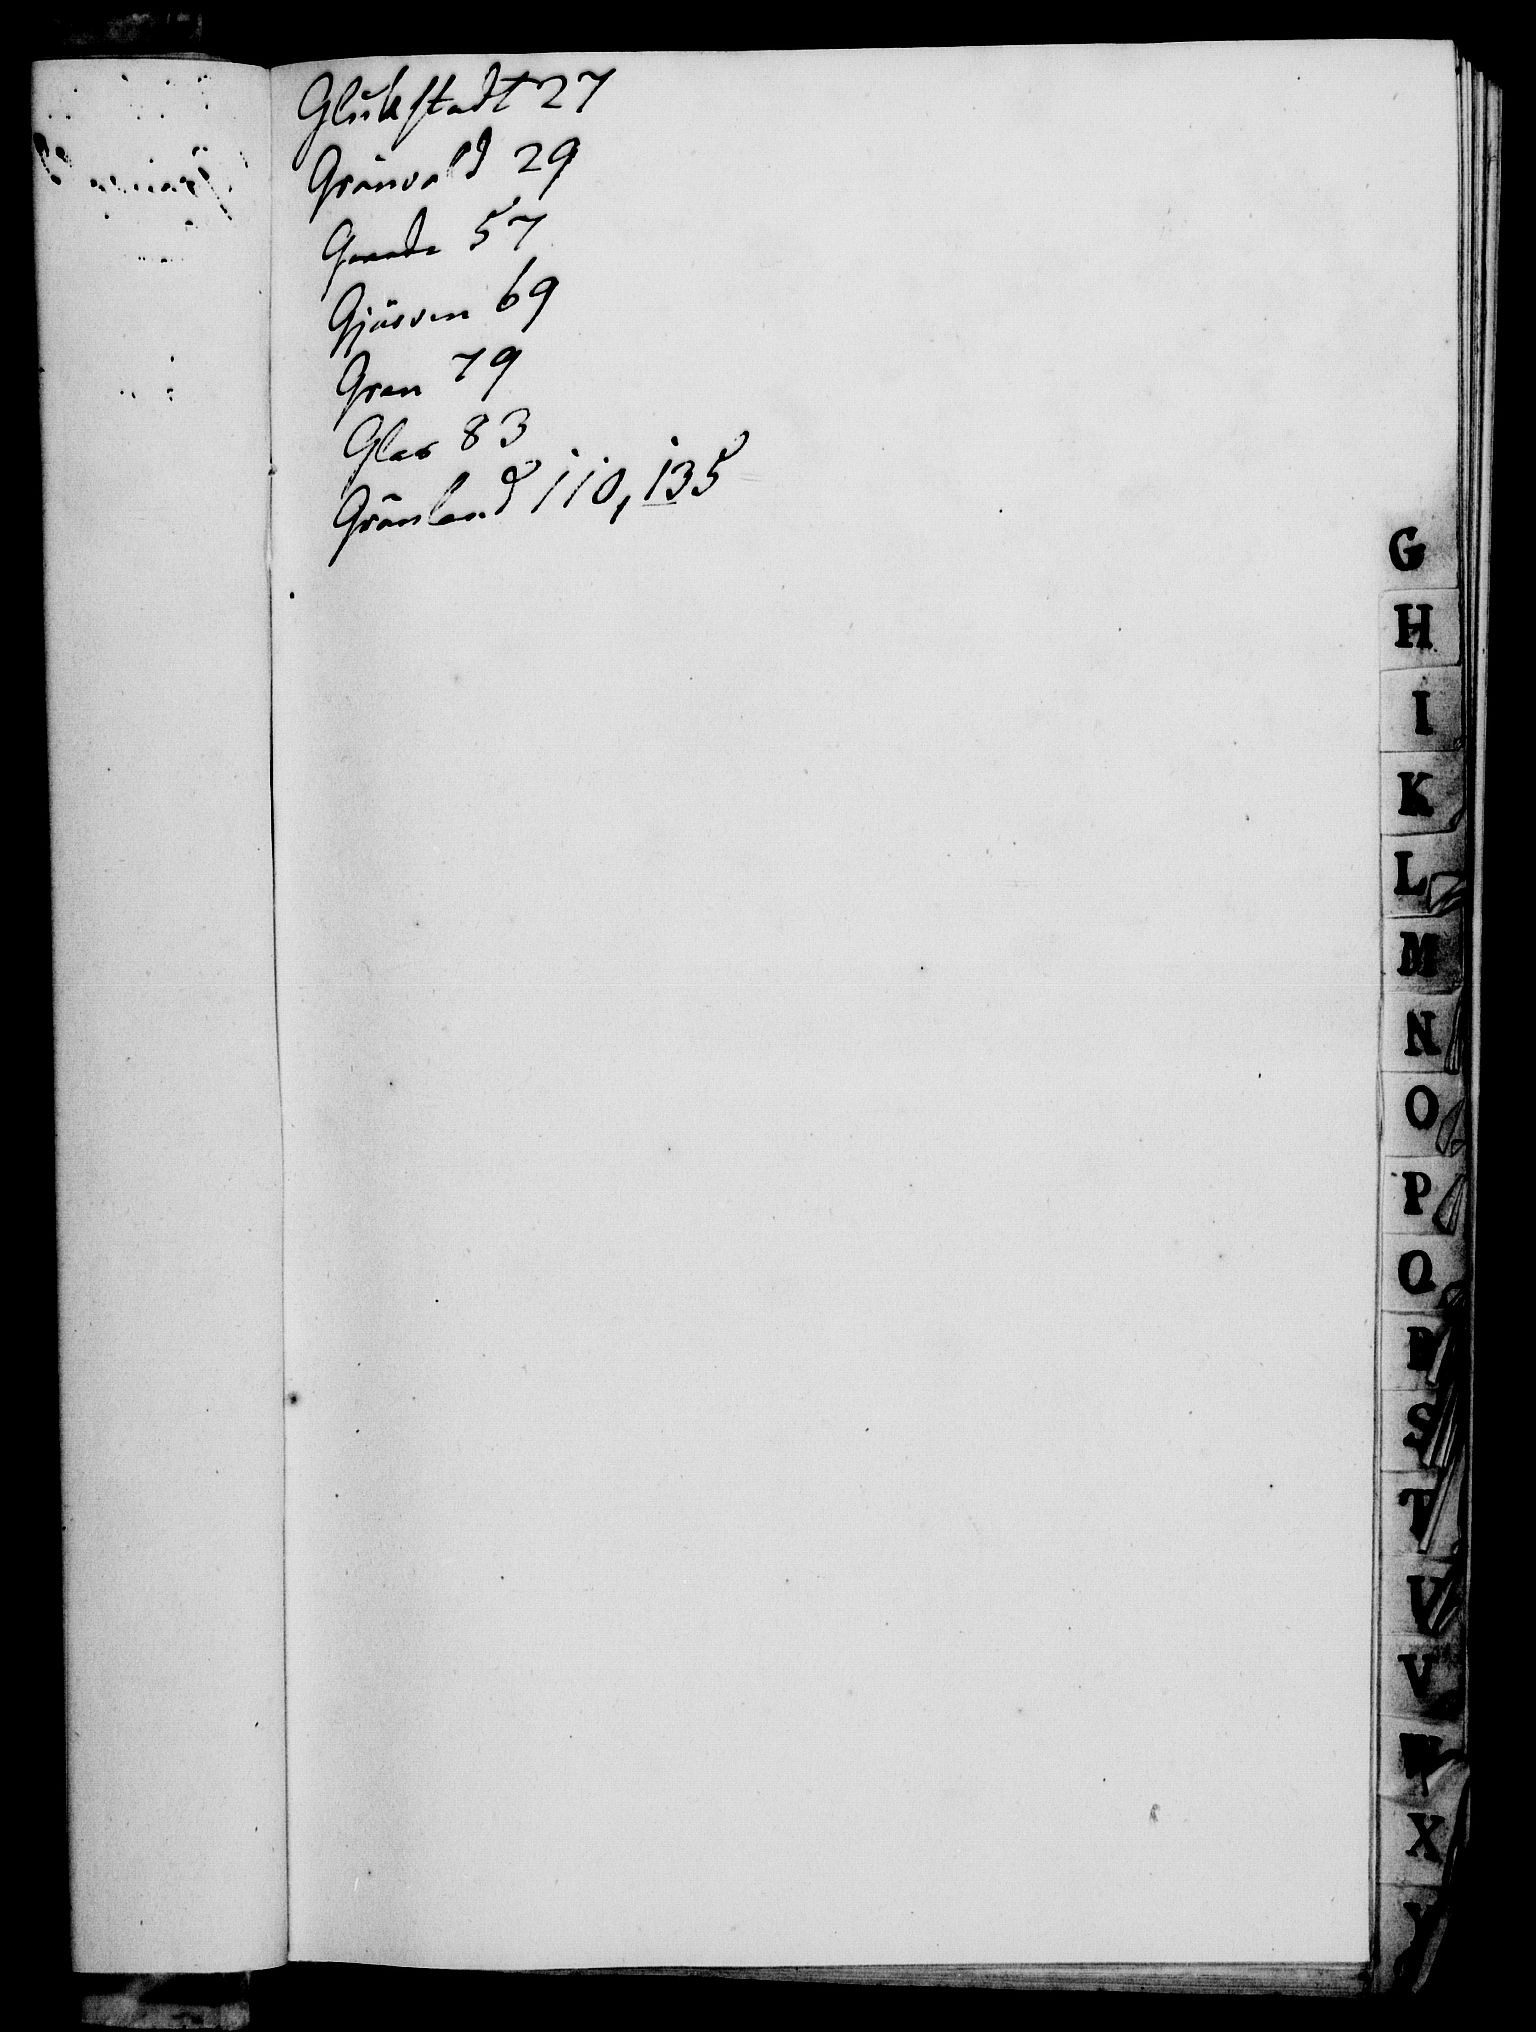 Glükstadt 27
Grönvold 29
Gaade 57
Gjörven 69
Gran 79
Glas 83
Grönland 110, 135
G
H
I
K
L
M
N
O
P
Q
R
S
T
U
V
W
X
Y